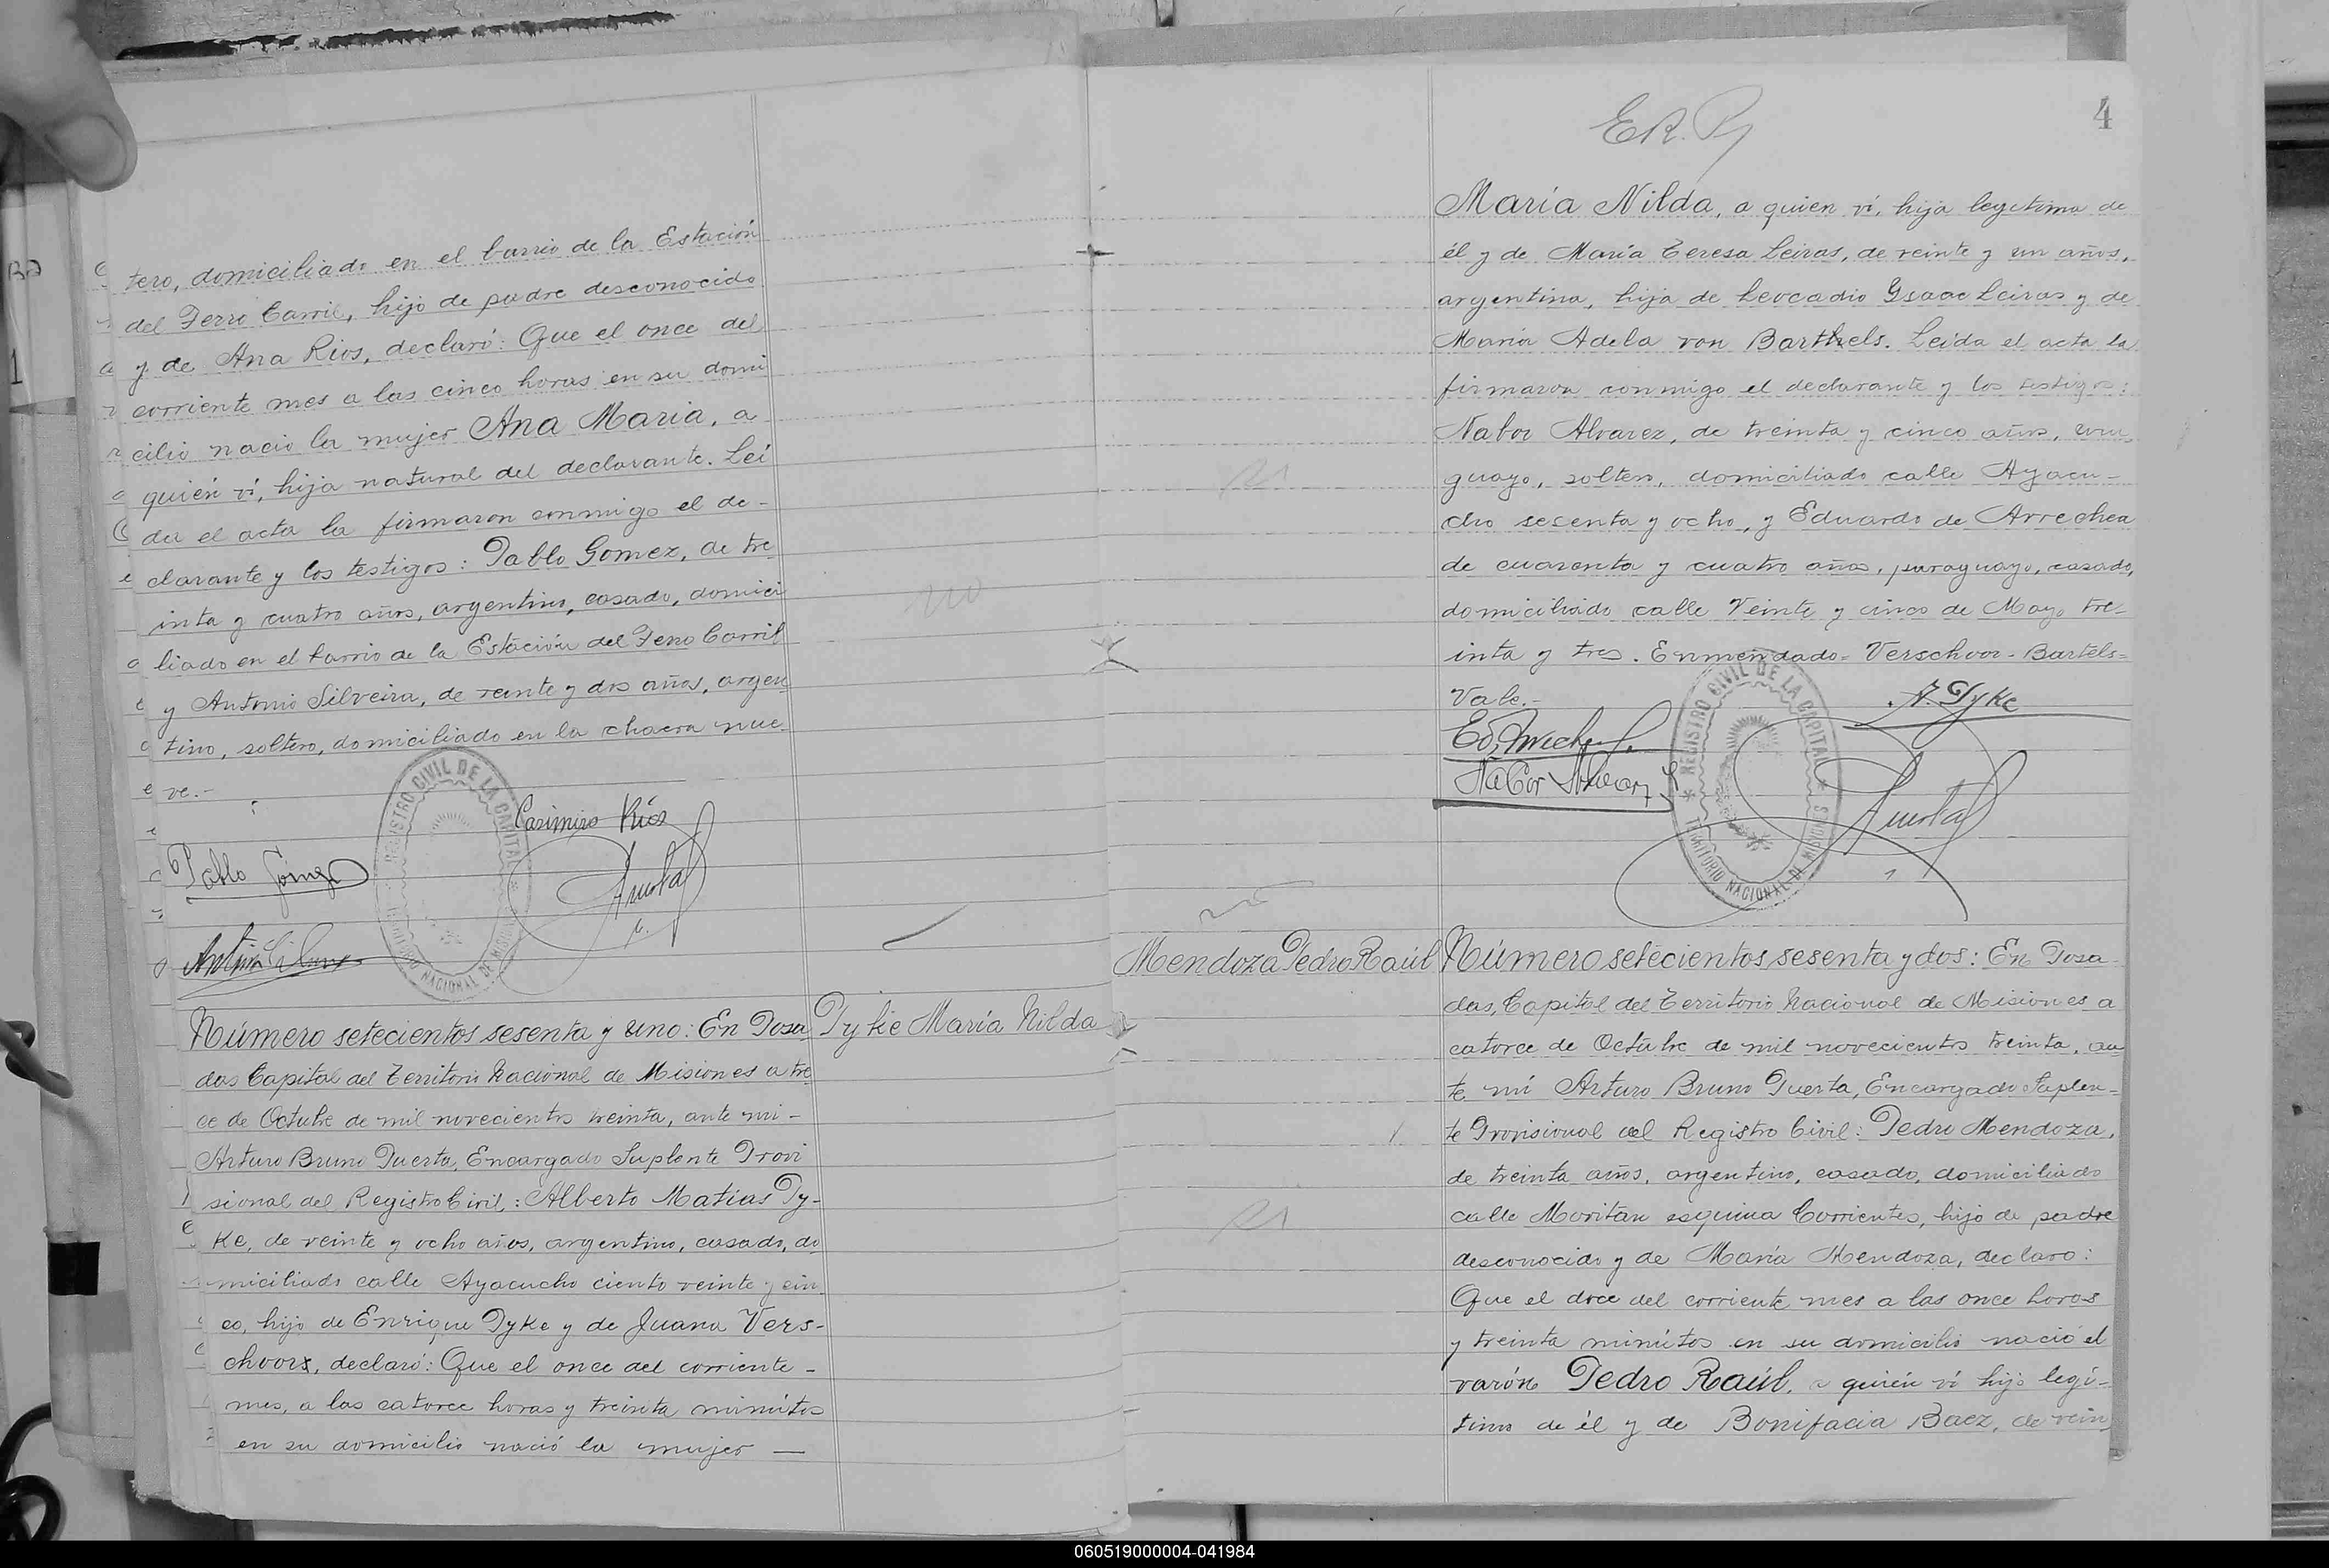 tero, domiciliado en el barrio de la Estación
del Ferro Carril, hijo de padre desconocido
y de Ana Rios, declaró: Que el once del
corriente mes a las cinco horas en su domi
cilio nació la mujer Ana Maria, a
quién ví, hija natural del declarante. Leí
da el acta la firmaron conmigo el de-
clarante y los testigos: Pablo Gomez, de tre
inta y cuatro años, argentino, casado, domici
liado en el barrio de la Estación del Ferro Carril
y Antonio Silveira, de veinte y dos años, argen
tino, soltero, domiciliado en la chacra nue
ve.-
Casimiro Ríos
Pablo Gómez
REGISTRO CIVIL DE LA CAPITAL
TERRITORIO NACIONAL DE MISIONES
no
Pyke María Nilda
Número setecientos sesenta y uno: En Posa
das Capital del Territorio Nacional de Misiones a tre
ce de Octubre de mil novecientos treinta, ante mi-
Arturo Bruno Puerta, Encargado Suplente Provi
sional del Registro Civil: Alberto Matias Py-
ke, de veinte y ocho años, argentino, casado, do
miciliado calle Ayacucho ciento veinte y cin
co, hijo de Enrique Pyke y de Juana Vers-
choor, declaró: Que el once del corriente-
mes, a las catorce horas y treinta minútos
en su domicilio nació la mujer —
4
María Nilda, a quien ví, hija legitima de
él y de María Teresa Leiras, de veinte y un años,
argentina, hija de Leocadio Ysaac Leiras y de
María Adela von Barthels. Leída el acta la
firmaron conmigo el declarante y los testigos:
Nabor Alvarez, de treinta y cinco años, uru
guayo, soltero, domiciliado calle Ayacu-
cho sesenta y ocho, y Eduardo de Arrechea
de cuarenta y cuatro años, paraguayo, casado,
domiciliado calle Veinte y cinco de Mayo tre-
inta y tres. Enmendado= Verschoor- Bartels=
Vale.-
A. Pyke
Nabor Alvarez
REGISTRO CIVIL DE LA CAPITAL
TERRITORIO NACIONAL DE MISIONES
Mendoza Pedro Raúl
Número setecientos sesenta y dos: En Posa
das, Capital del Territorio Nacional de Misiones a
catorce de Octubre de mil novecientos treinta, an
te mí Arturo Bruno Puerta, Encargado Suplen-
te Provisional del Registro Civil: Pedro Mendoza,
de treinta años, argentino, casado, domiciliado
calle Moritan esquina Corrientes, hijo de padre
desconocido y de María Mendoza, declaro:
Que el doce del corriente mes a las once horas
y treinta minútos en su domicilio nació el
varón Pedro Raúl, a quién ví hijo legí-
timo de él y de Bonifacia Baez, de vein
060519000004-041984